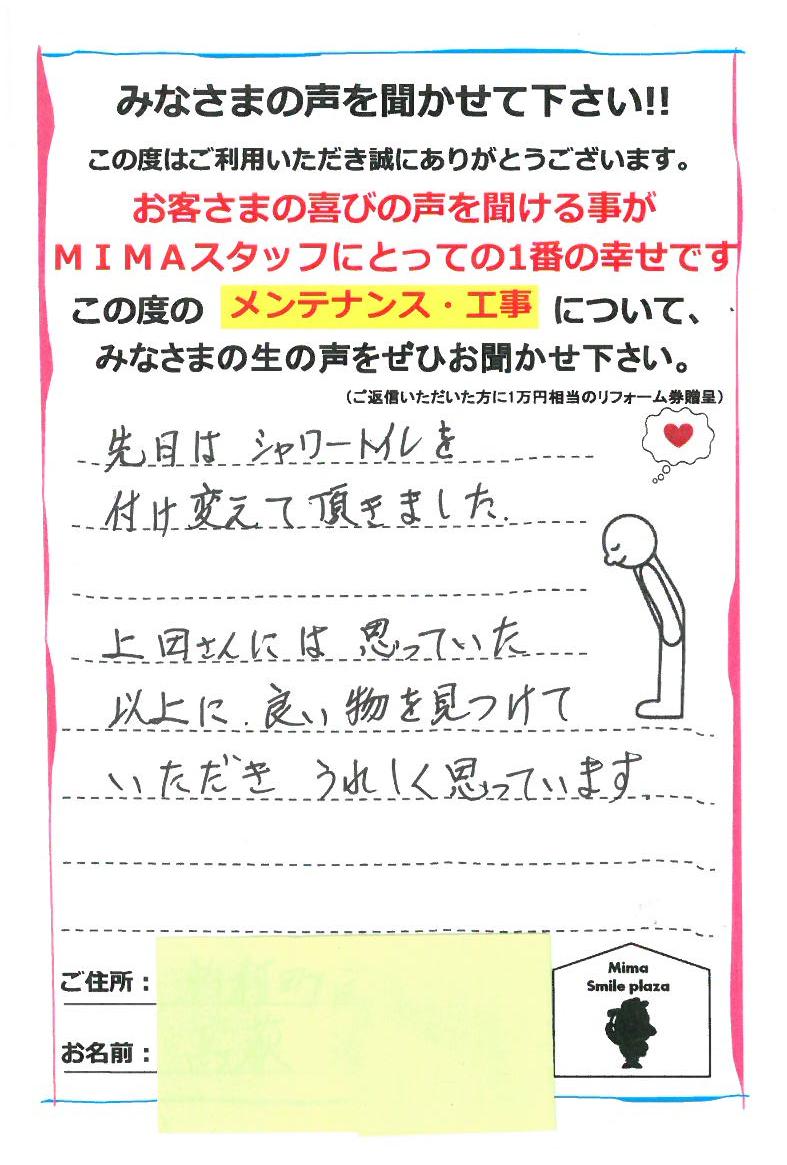 みなさまの声を聞かせて下さい!!
この度はご利用いただき誠にありがとうございます。
お客さまの喜びの声を聞ける事が
ＭＩＭＡスタッフにとっての1番の幸せです
この度の メンテナンス・工事 について、
みなさまの生の声をぜひお聞かせ下さい。
（ご返信いただいた方に1万円相当のリフォーム券贈呈）
先日は シャワートイレを
付け変えて頂きました.
上田さんには 思っていた
以上に.良い物を見つけて
いただき うれしく思っています.
ご住所：
お名前：
Mima
Smile plaza